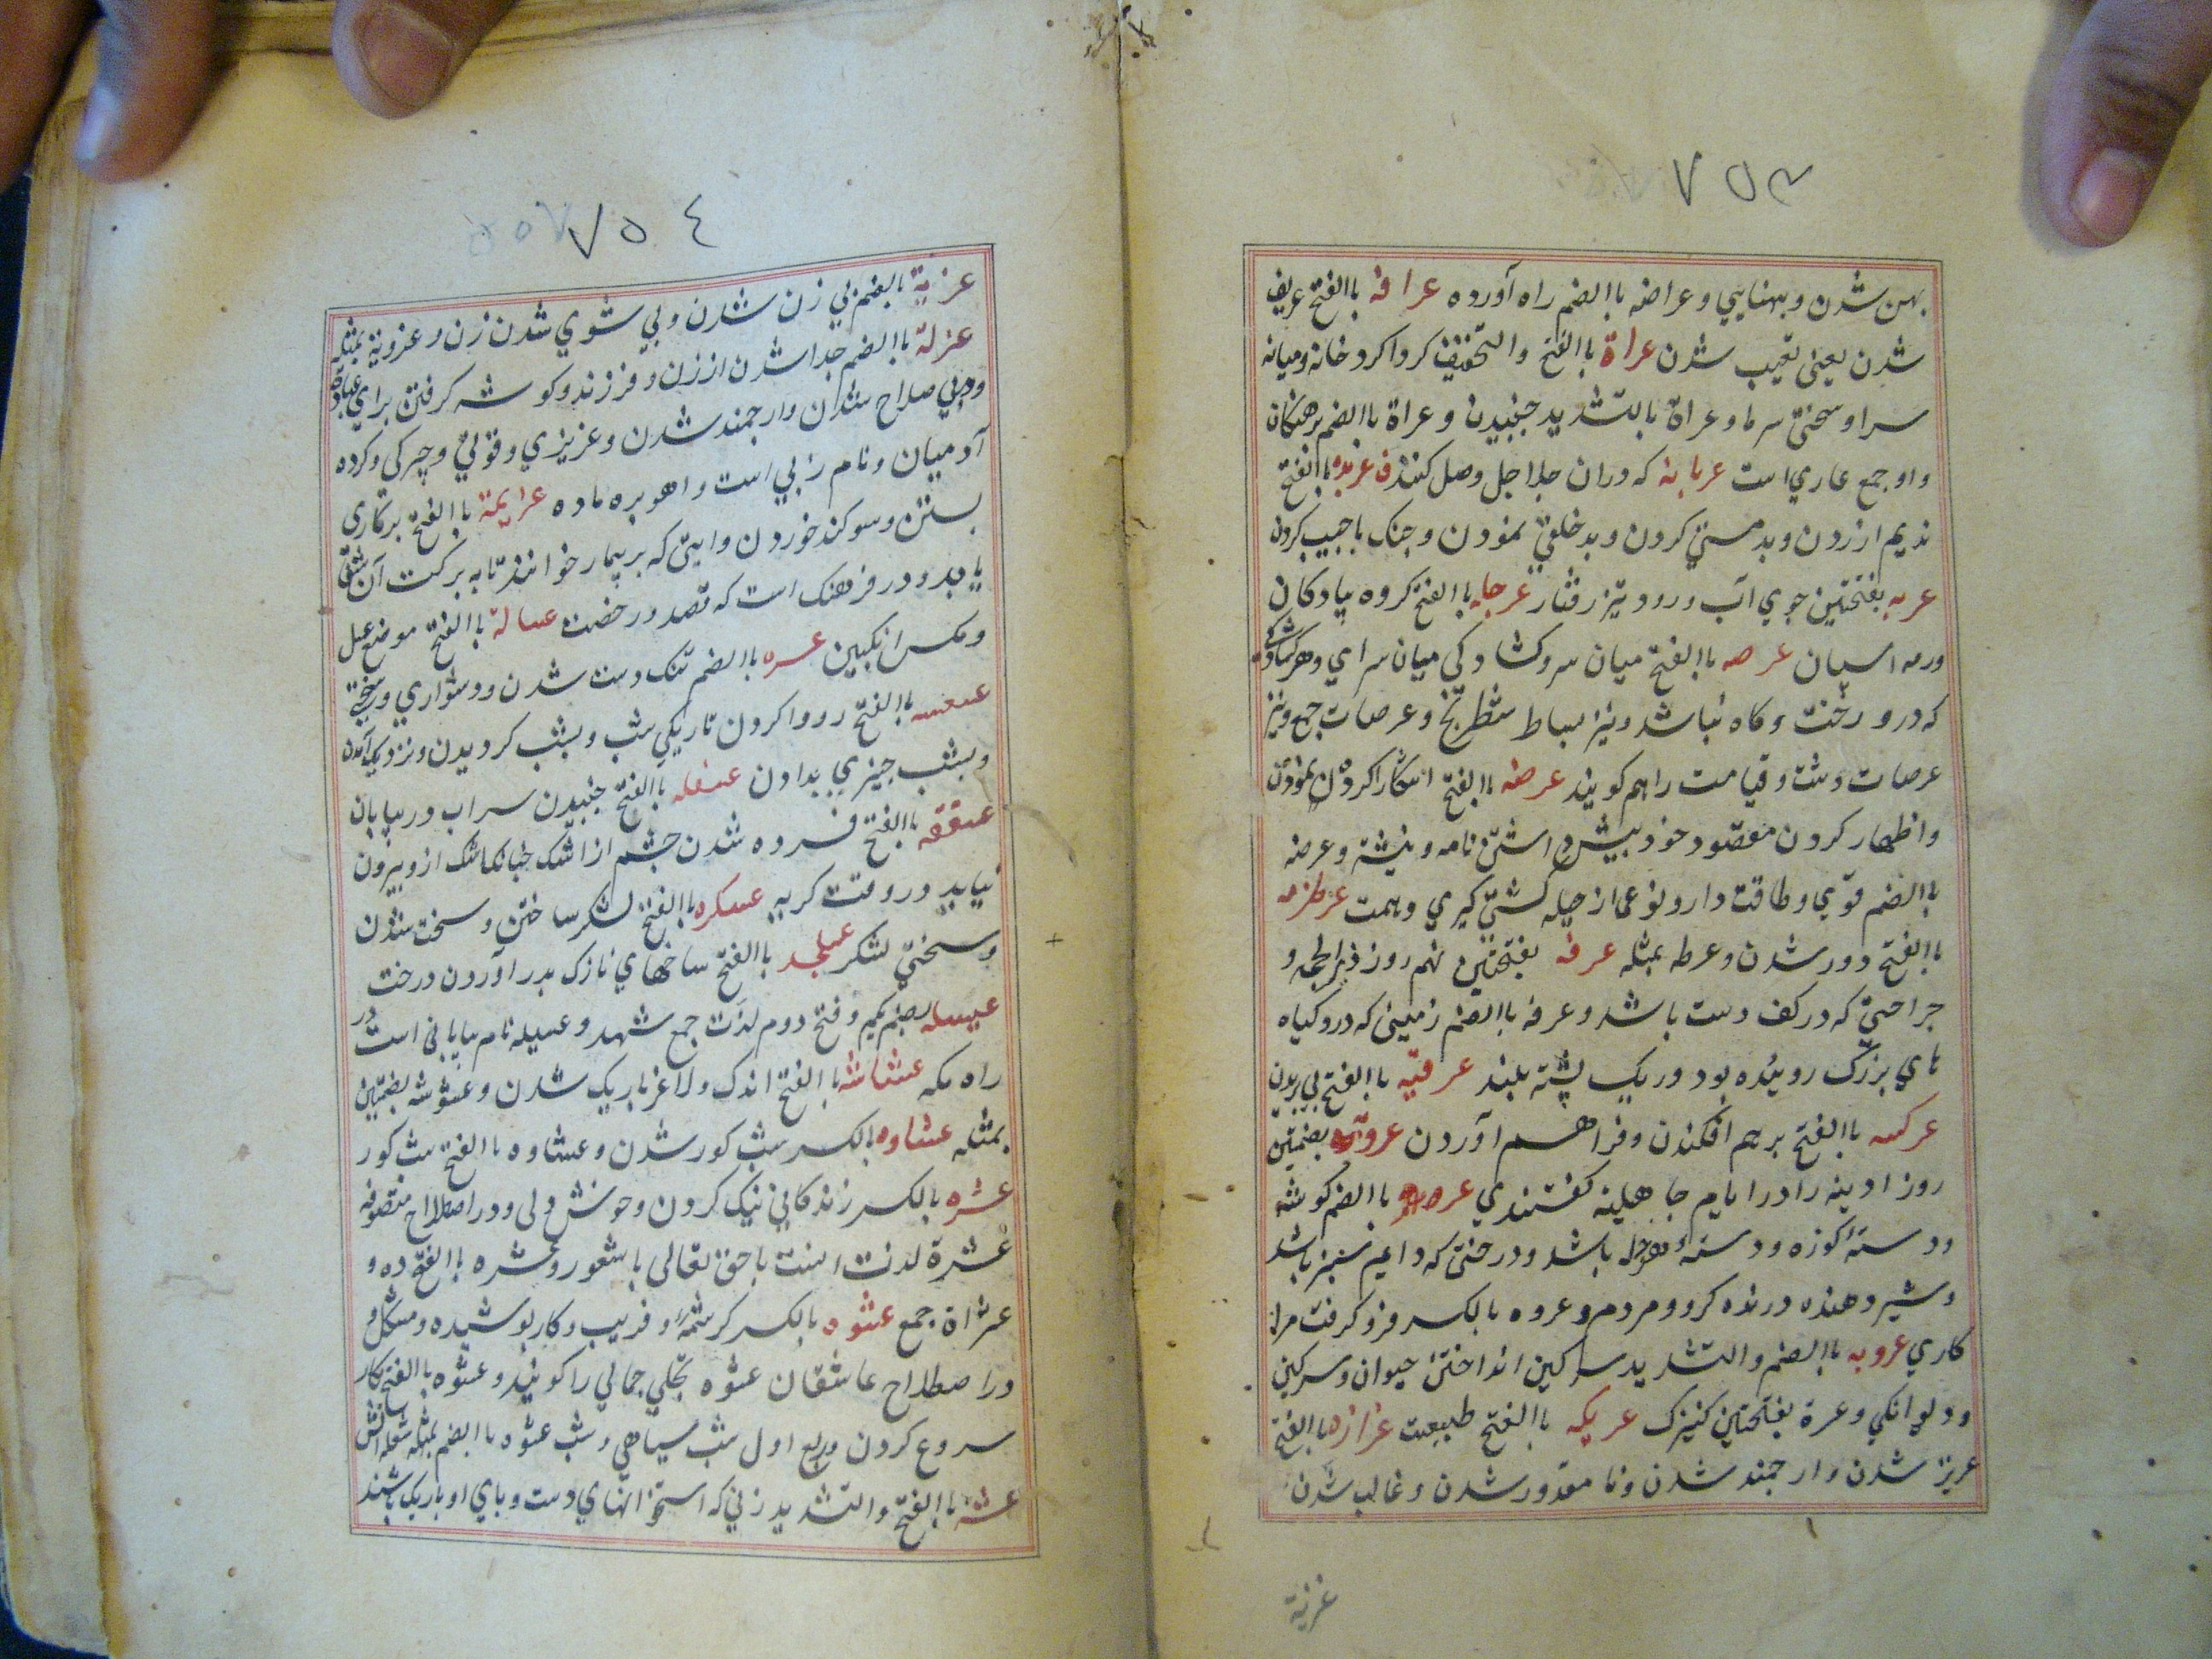 ٧٥٣
پهن شدن و پهنايي و عراضه باالضم راه آورده عرافه باالفتح عريف
شدن يعنى نقيب شدن عراة باالفتح والتخفيف كرداكرد خانه وميانه
سرا وسختئ سرما و عراة بالتشديد جنبيدن و عراة باالضم برهنكان
واو جمع عاري است عربانه كه دران جلاجل وصل كنند عربده باالفتح
نديم ازردن وبد مستي كردن وبد خلقي نمودن وجنك با حبيب كردن
عربه بفتحتين جوي آب ورود تيز رفتار عرجله باالفتح كروه پيادكان
ورمه اسپان عرصه باالفتح ميان سرو كشادكي ميان سراي وهر كشادكي
كه درو رخت وكاه نباشد ونيز بساط شطرنج و عرصات جمع ونيز
عرصات دشت وقيامت راهم كويند عرضه باالفتح اشكارا كردن نمودن
واظهار كردن مقصود خود پيش داشتن نامه ونبشته وعرضه
باالضم قوّي وطاقت دار ونوعى از حيله كشتي كيري وهمت عرطزمه
باالفتح دور شدن و عرطه بمثله عرفه بفتحتين نهم روز ذي الحجه و
جراحتي كه در كف دست باشد و عرفه باالضم زميني كه درو كياه
هاي بزرك روينده بود وريك پشته بلند عرقيّه باالفتح پي بريدن
عركسه باالفتح برهم افكندن وفراهم آوردن عروبه بضمتين
روز ادينه را در ايام جاهليه كفتندي عروه باالضم كوشه
ودسته كوزه ودسته دلو باشد ودرختي كه دايم سبز باشد
وشير دهنده درنده كرو ومردم وعروه بالكسر فرو كرفت مر
كاري عروبه باالضم والتشديد سركين انداختن حيوان وسركين
وديوانكي وعرة بفتحتين كنيزك عريكه باالفتح طبيعت عزازه باالفتح
عزيز شدن وارجمند شدن ونا مقدور شدن وغالب شدن
عزبة
٧٥٤
عزبة بالضم بي زن شدن وبي شوي شدن زن وعزوبة بمثله
عزلة باالضم جدا شدن از زن وفرزند وكوشه كرفتن براي عبادة
وبي صلاح شدن وارجمند شدن وعزيزي وقوتي وچيركي وكرده
آدميان ونام زني است واهو بره ماده عزيمة باالفتح بركاري
بستن وسوكند خوردن وايتي كه بر بيمار خوانند تا به بركت آن شفا
يابد ودر فرهنك است كه قصد در رخصت عسالة باالفتح موضع عسل
ومكس انكبين عسره باالضم تنك دست شدن ودشواري وسختي
عسعسه باالفتح رو وا كردن تاريكي شب وبشب كرديدن ونزديك آمدن
وبشب چيزي بدادن عسقله باالفتح جنبيدن سراب در بيابان
عسقفه باالفتح فسرده شدن چشم از اشك چنانكه اشك ازو بيرون
نيايد در وقت كريه عسكره باالفتح لشكر ساختن وسخت شدن
وسختي لشكر عسلجه باالفتح ساخهاي نازك بدر آوردن درخت
عسيله بضم يكم وفتح دوم لذّت جمع شهد وعسيله نام بيابانى است در
راه مكه عشاشه باالفتح اندك ولاغر باريك شدن وعشوشه بضمتين
بمثله عشاوه بالكسر شب كور شدن وعشاوه باالفتح شب كور
عشره بالكسر زندكاني نيك كردن وخوش دلى ودر اصطلاح متصوفه
عشرة لذت است باحق تعالى باشعور وعشره باالفتح ده و
عشراة جمع عشوه بالكسر كرشمه وفريب وكار پوشيده ومشكل و
در اصطلاح عاشقان عشوه تجلي جمالي را كويند وعشوه باالفتح كار
شروع كردن وربع اول شب سياهي وشب عشوه باالضم بمثله شعله آتش
عشه باالفتح والتشديد زني كه استخوانهاي دست وپاي او باريك باشند